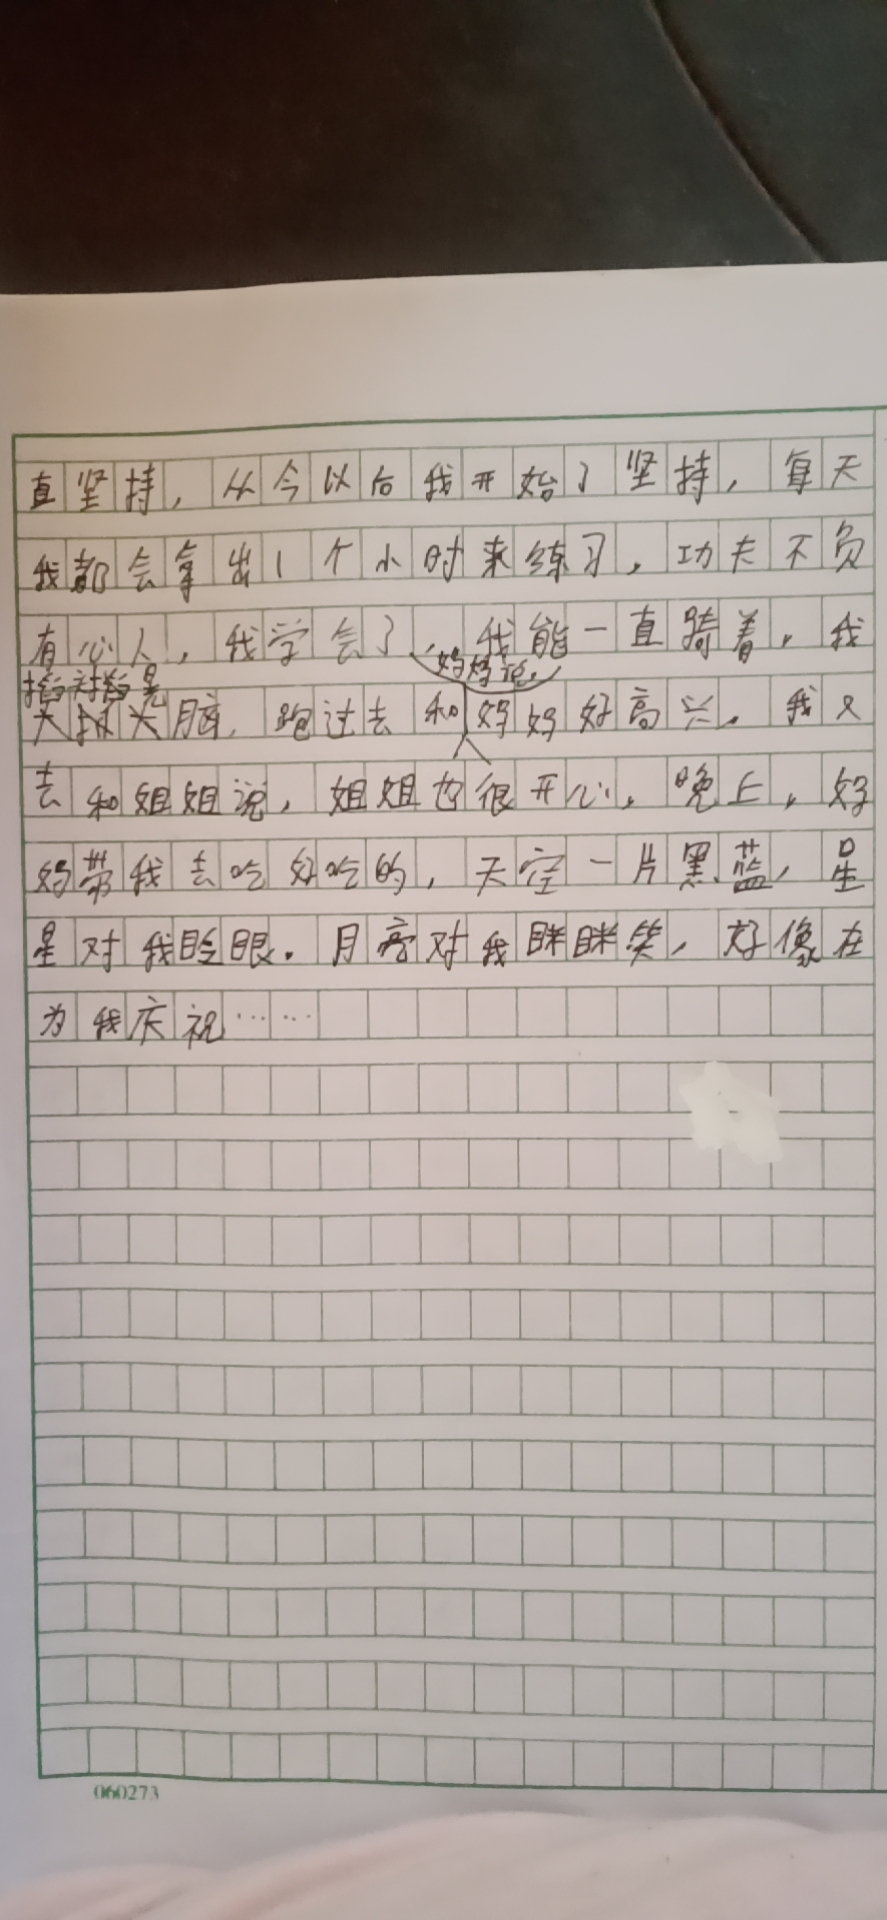 直坚持，从今以后我开始了坚持，每天
我都会拿出1个小时来练习，功夫不负
有心人，我学会了，我能一直骑着，我
妈妈说，
头 头脑，跑过去和妈妈好高兴。我又
去和姐姐说，姐姐也很开心，晚上，好
妈带我去吃好吃的，天空一片黑蓝，星
星对我眨眼。月亮对我眯眯笑，好像在
为我庆祝……
060273